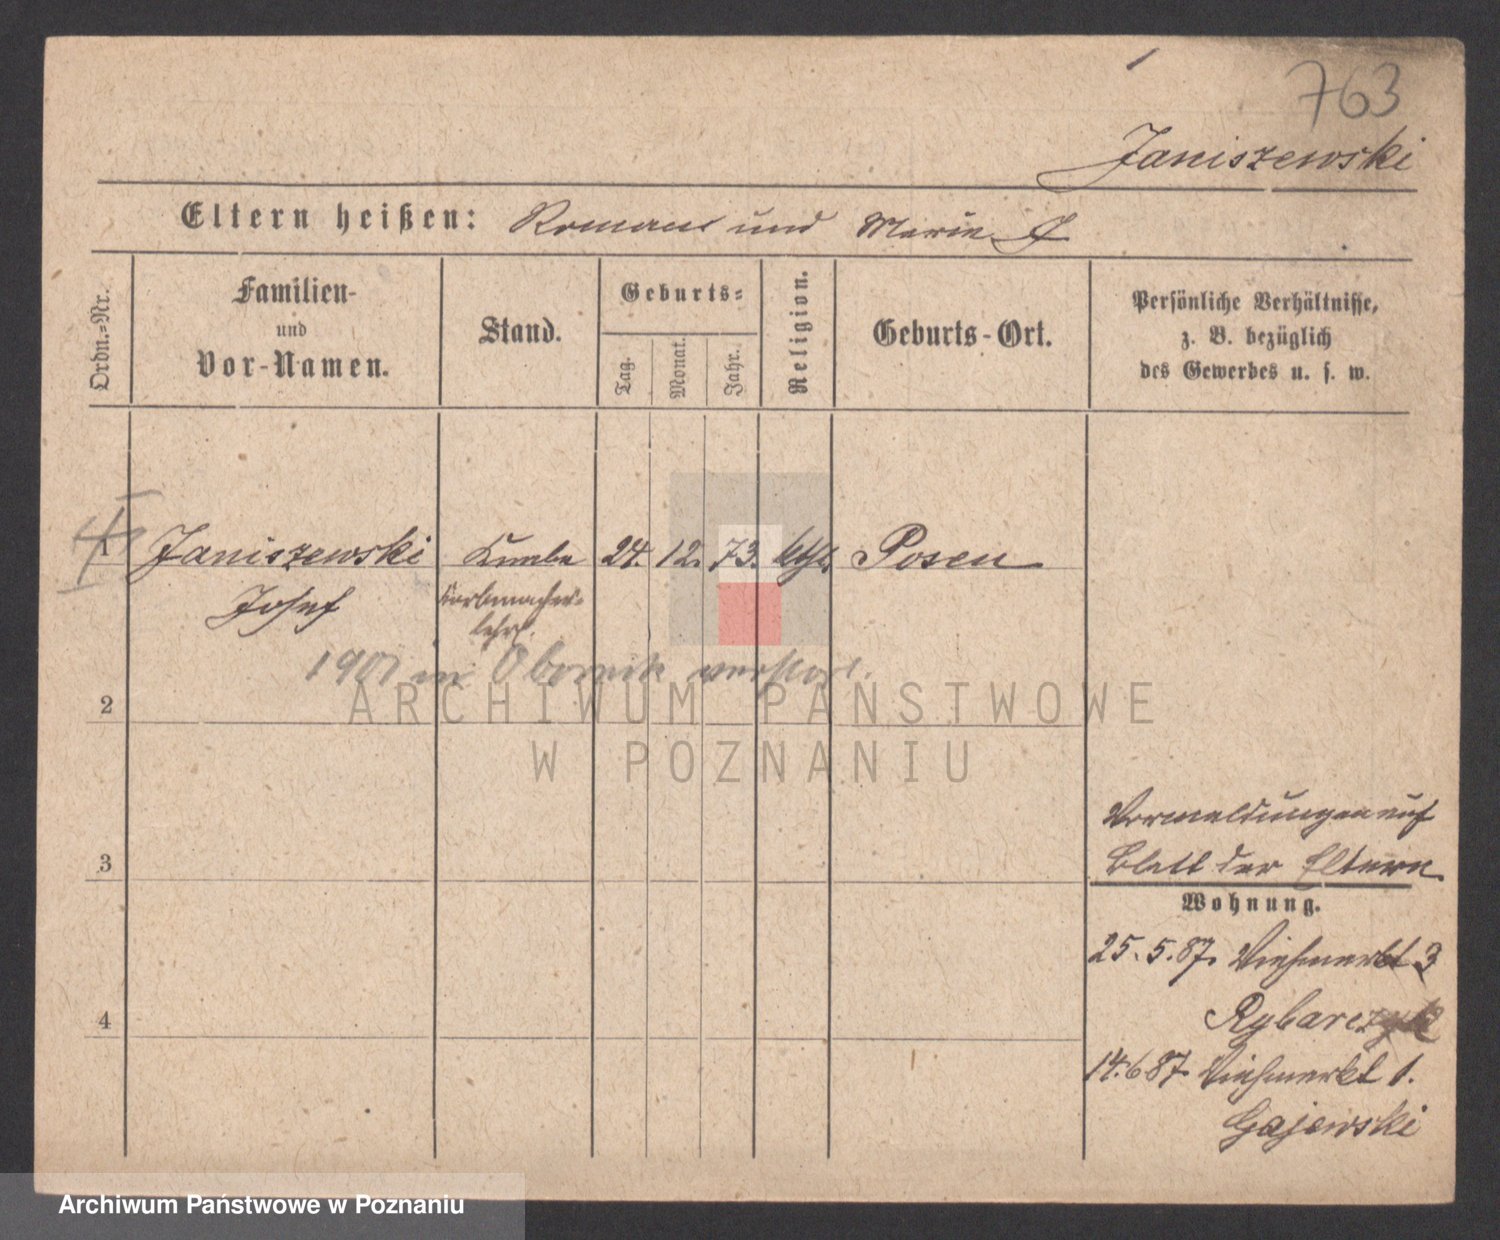 763
Janiszewski
Eltern heißen: Roman und Marie J
Ordn.=Nr.
Familien-
und
Vor-Namen.
Stand.
Geburts=
Tag.
Monat.
Jahr.
Religion.
Geburts-Ort.
Persönliche Verhältnisse,
z. B. bezüglich
des Gewerbes u. s. w.
1 Janiszewski Knabe 24. 12. 73. kth. Posen
Josef
Korbmacher-
lehrl.
1901 in Obornik verstorb.
2
3
4
Vormeldungen auf
Blatt der Eltern
Wohnung.
25.5.87. Viehmarkt 3
Rybarczyk
14.6 87 Viehmarkt 1.
Gajewski
ARCHIWUM PAŃSTWOWE
W POZNANIU
Archiwum Państwowe w Poznaniu